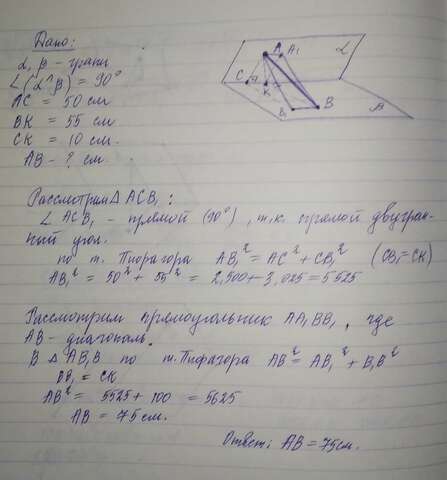 Дано:
α, β - грани
∠(α^β) = 90°
AC = 50 см
BK = 55 см
CK = 10 см
AB - ? см.
A A₁ α
C
B
B₁ β
Рассмотрим △ ACB₁ :
∠ ACB₁ - прямой (90°), т.к. прямой двугран-
ный угол.
по т. Пифагора AB₁² = AC² + CB₁² (CB₁=CK)
AB₁² = 50² + 55² = 2,500 + 3,025 = 5525
Рассмотрим прямоугольник AA₁BB₁, где
AB - диагональ.
В △ AB₁B по т. Пифагора AB² = AB₁² + B₁B²
BB₁ = CK
AB² = 5525 + 100 = 5625
AB = 75 см.
Ответ: AB = 75 см.